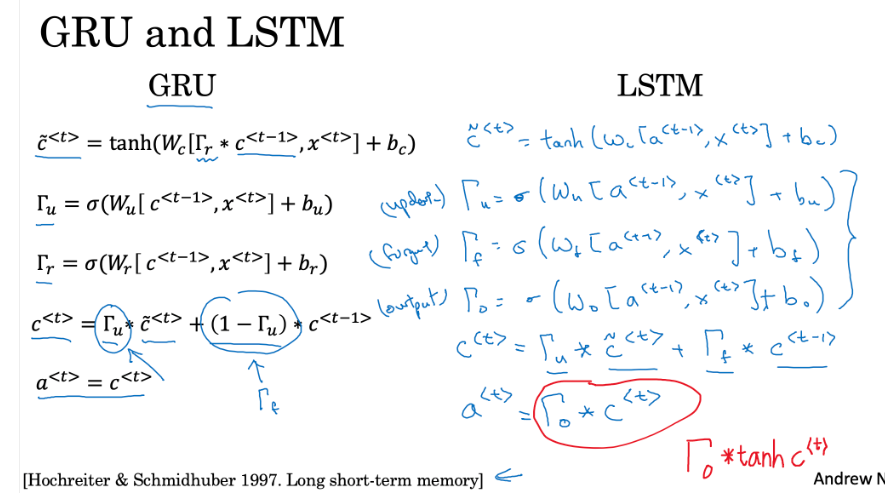 GRU and LSTM
GRU
c̃<t> = tanh(Wc[Γr * c<t−1>, x<t>] + bc)
Γu = σ(Wu[ c<t−1>, x<t>] + bu)
Γr = σ(Wr[ c<t−1>, x<t>] + br)
c<t> = Γu * c̃<t> + (1 − Γu) * c<t−1>
a<t> = c<t>
Γf
LSTM
c̃<t> = tanh(Wc[a<t-1>, x<t>] + bc)
(update) Γu = σ(Wu[a<t-1>, x<t>] + bu)
(forget) Γf = σ(Wf[a<t-1>, x<t>] + bf)
(output) Γo = σ(Wo[a<t-1>, x<t>] + bo)
c<t> = Γu * c̃<t> + Γf * c<t-1>
a<t> = Γo * c<t>
Γo * tanh c<t>
[Hochreiter & Schmidhuber 1997. Long short-term memory] ←
Andrew N